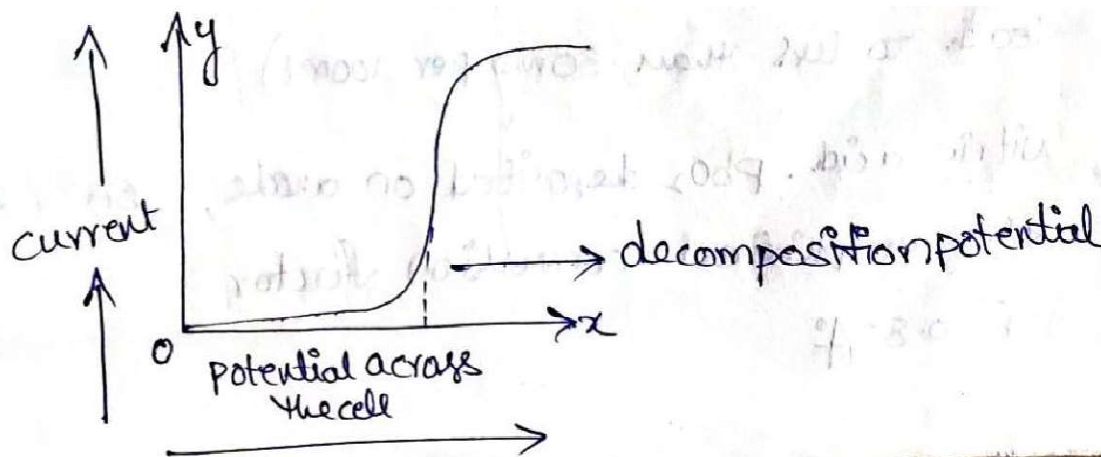 y
current
decompositionpotential
x
0
potential across
the cell